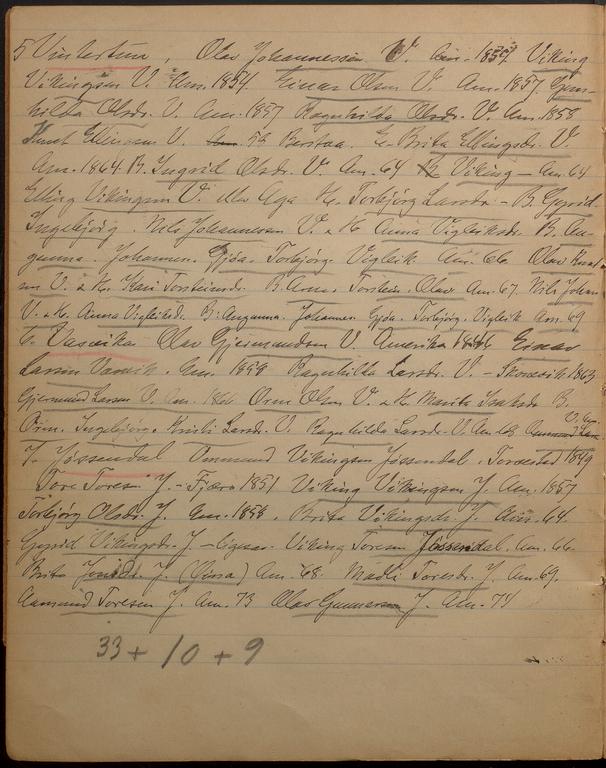 5 Vintertun, Olav Johannessen V. Am. 1857 Viking
Vikingsen V. Am. 1854. Einar Olsen V. Am. 1857. Gun-
hilda Olsdr. V. Am. 1857 Ragnhilda Olsdr. V. Am. 1858
Knut Ellinsen V. Am. 58 Børstaa. E. Brita Ellingsdr. V.
Am. 1864. B. Ingrid Olsdr. V. Am. 64 Viking — Am. 64
Elling Vikingsen V. Aga K. Torbjørg Larsdr. - B. Gyrid
Ingebjørg. Nils Johannessen V. & K. Anna Vigleiksdr. B. An-
gunna. Johannes. Gjøa. Torbjørg. Vigleik Am. 66. Olav Knut
sen V. & K. Kari Torsteinsdr. B. Arne. Torstein. Olav Am. 67. Nils Johan
V. & K. Anna Vigleiksd. B. Angunna. Johannes Gjøa. Torbjørg. Vigleik Am. 69
6. Vasvika Olav Gjermundsen V. Amerika 1846 Einar
Larsen Vasvik. Am. 1858 Ragnhilda Larsdr. V. - Skonevik 1863
Gjermund Larsen V. Am. Orm Olsen V. & K. Marita Isaksdr. B.
Orm. Ingebjørg. Kristi Larsd. V. Ragnhilda Larsdr. V. Am. 68 Aamund Lars.
V. Am.
7. Jøssendal Aamund Vikingsen Jøssendal. 1849
Tore Toresen J. - Fjæra 1851 Viking Vikingsen J. Am. 1857
Torbjørg Olsdr. J. Am. 1858. Brita Vikingsdr. J. Am. 64.
Gyrid Vikingsdr. J. - Viking Toresen Jøssendal. Am. 66.
Brita J. Am. 68. Madli Toresdr. J. Am. 69.
Aamund Toresen J. Am. 73 Olav Gunnarson J. Am. 74
33 + 10 + 9